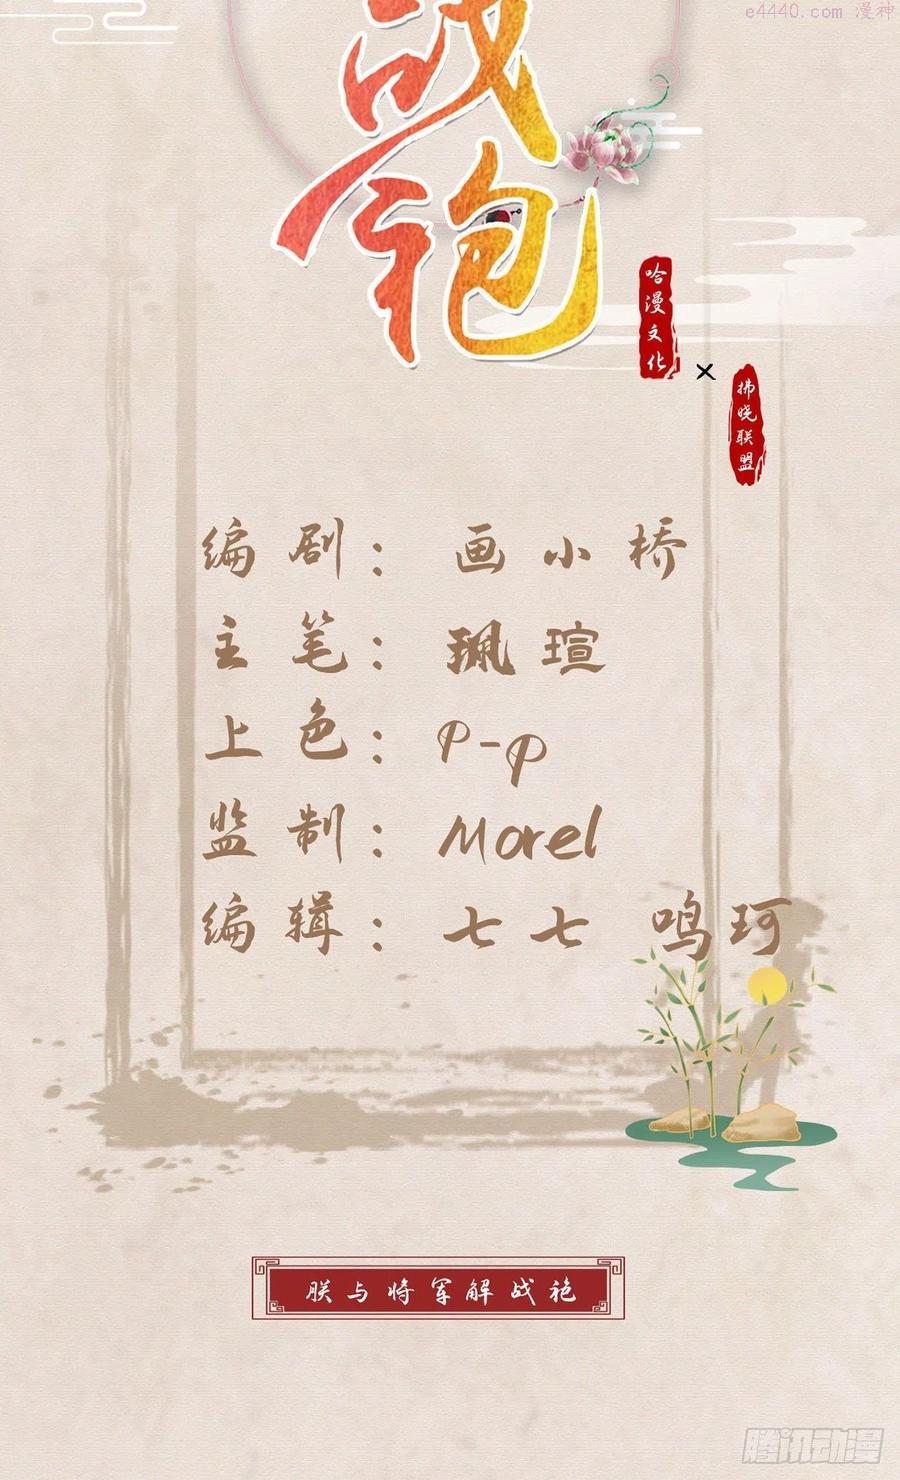 e4440.com 漫神
战袍
哈漫文化
×
拂晓联盟
编剧：画小桥
主笔：珮瑄
上色：P-P
监制：Morel
编辑：七七 鸣珂
朕与将军解战袍
腾讯动漫